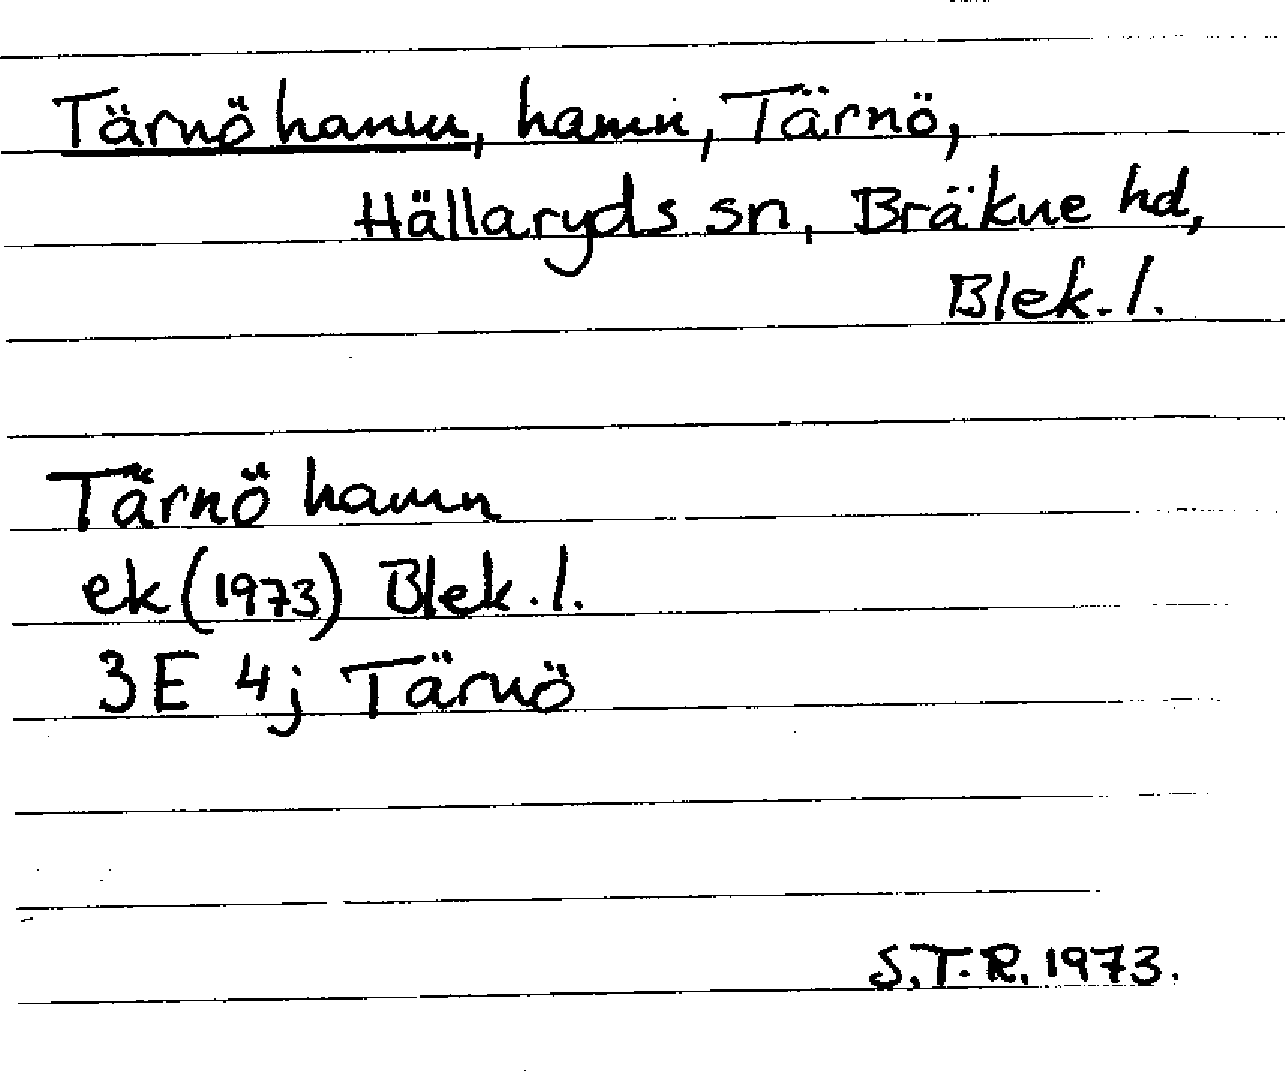 Tärnö hamn, hamn, Tärnö,
Hällaryds sn, Bräkne hd,
Blek. l.
Tärnö hamn
ek (1973) Blek. l.
3E 4j Tärnö
S.T.R. 1973.